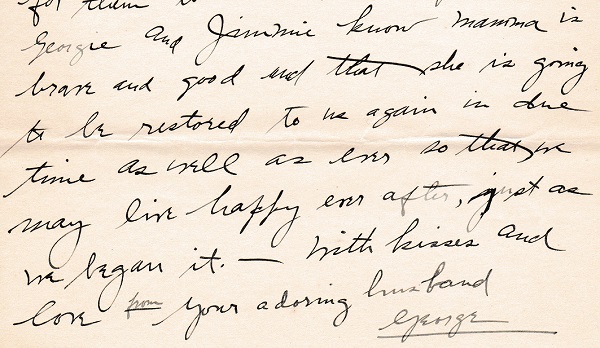 for them to
Georgie and Jimmie know mamma is
brave and good and that she is going
to be restored to us again in due
time as well as ever so that we
may live happy ever after, just as
we began it. — With kisses and
love from Your adoring husband
George